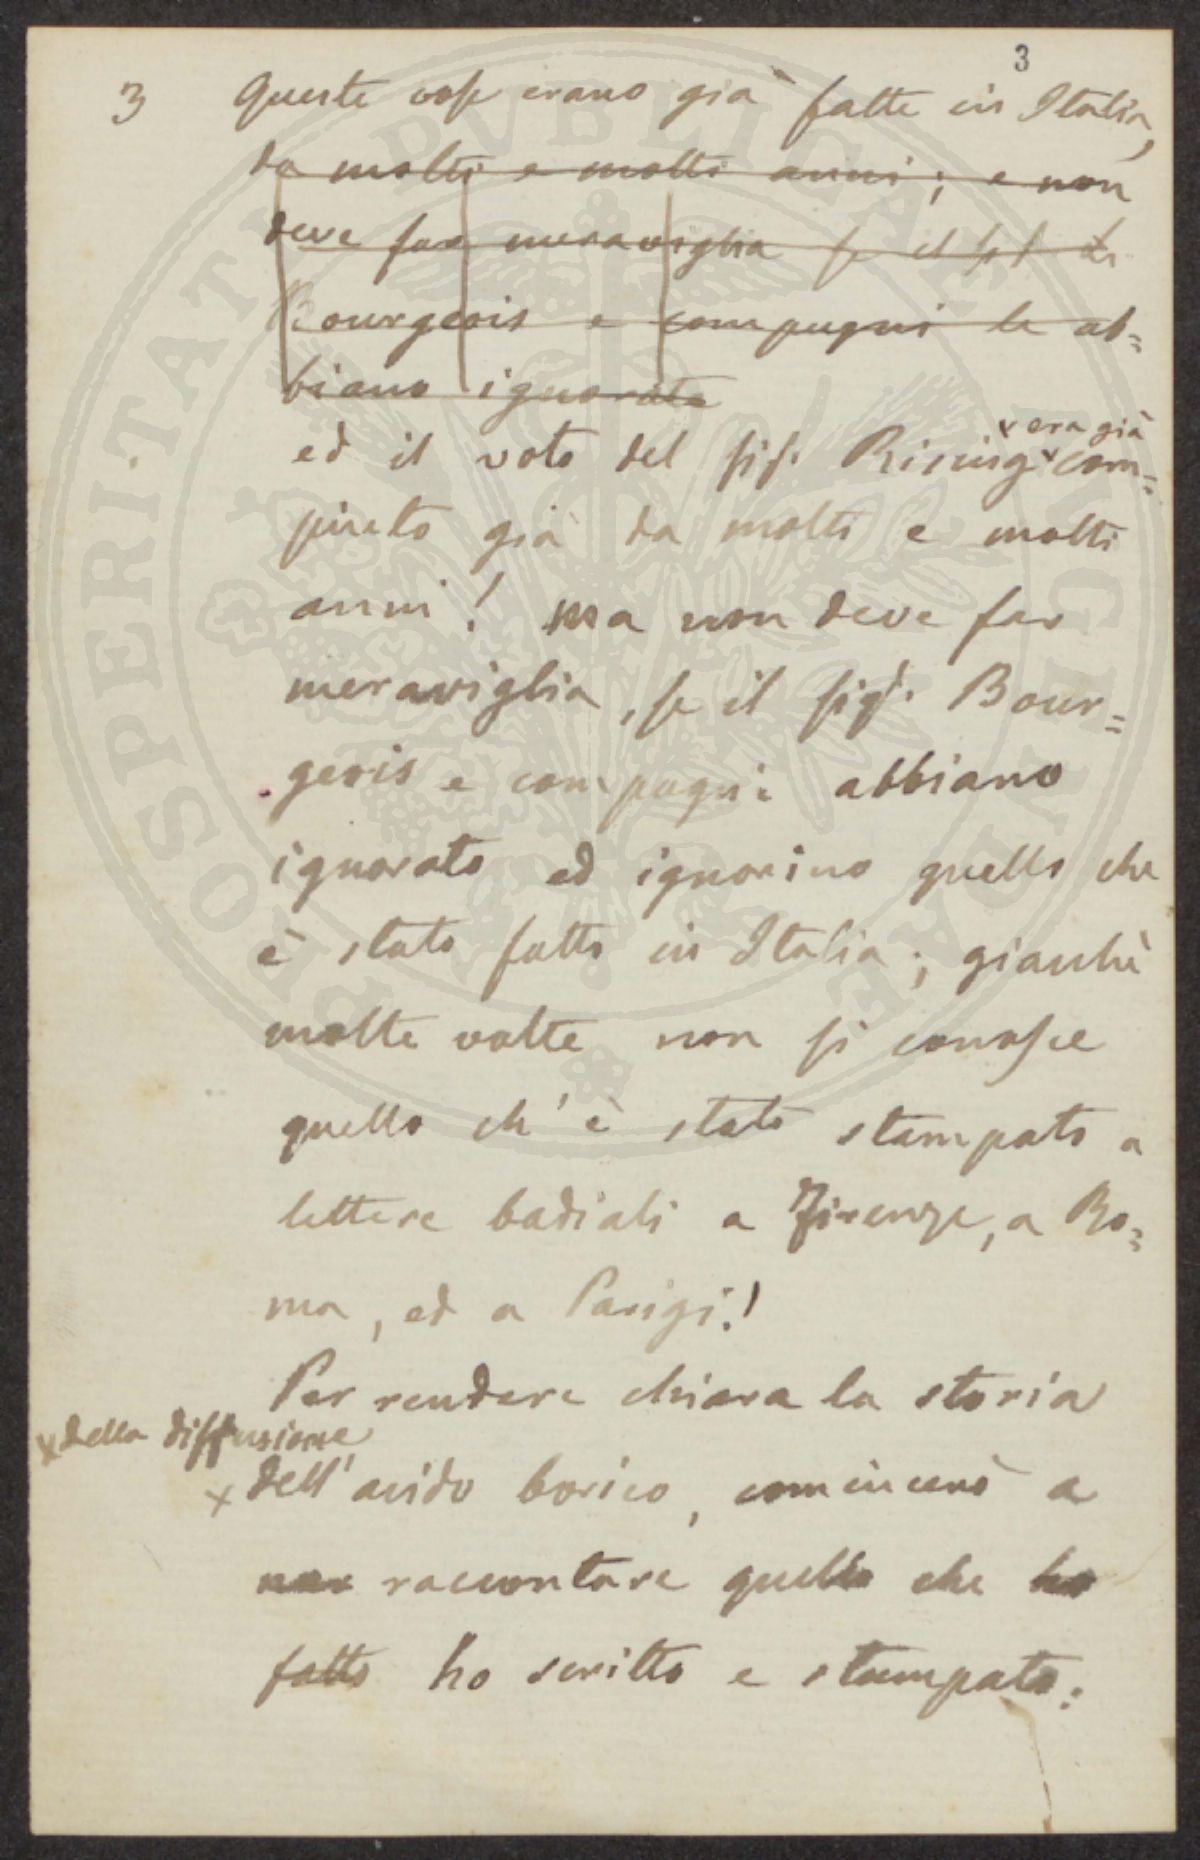 3
3 Queste cose erano già fatte in Italia,
da molti e molti anni; e non
deve far meraviglia se il sig di
Bourgeois e compagni le ab=
biano ignorate
ed il voto del sig. Rising × com=
× era già
piuto già da molti e molti
anni! ma non deve far
meraviglia, se il sig. Bour=
geois e compagni abbiano
ignorato ed ignorino quello che
è stato fatto in Italia; giacchè
molte volte non si conosce
quello ch'è stato stampato a
lettere badiali a Firenze, a Ro=
ma, ed a Parigi!
Per rendere chiara la storia
× della diffusione
× dell'acido borico, comincerò a
raccontare quello che ho
fatto ho scritto e stampato.
PROSPERITATI PVBLICAE